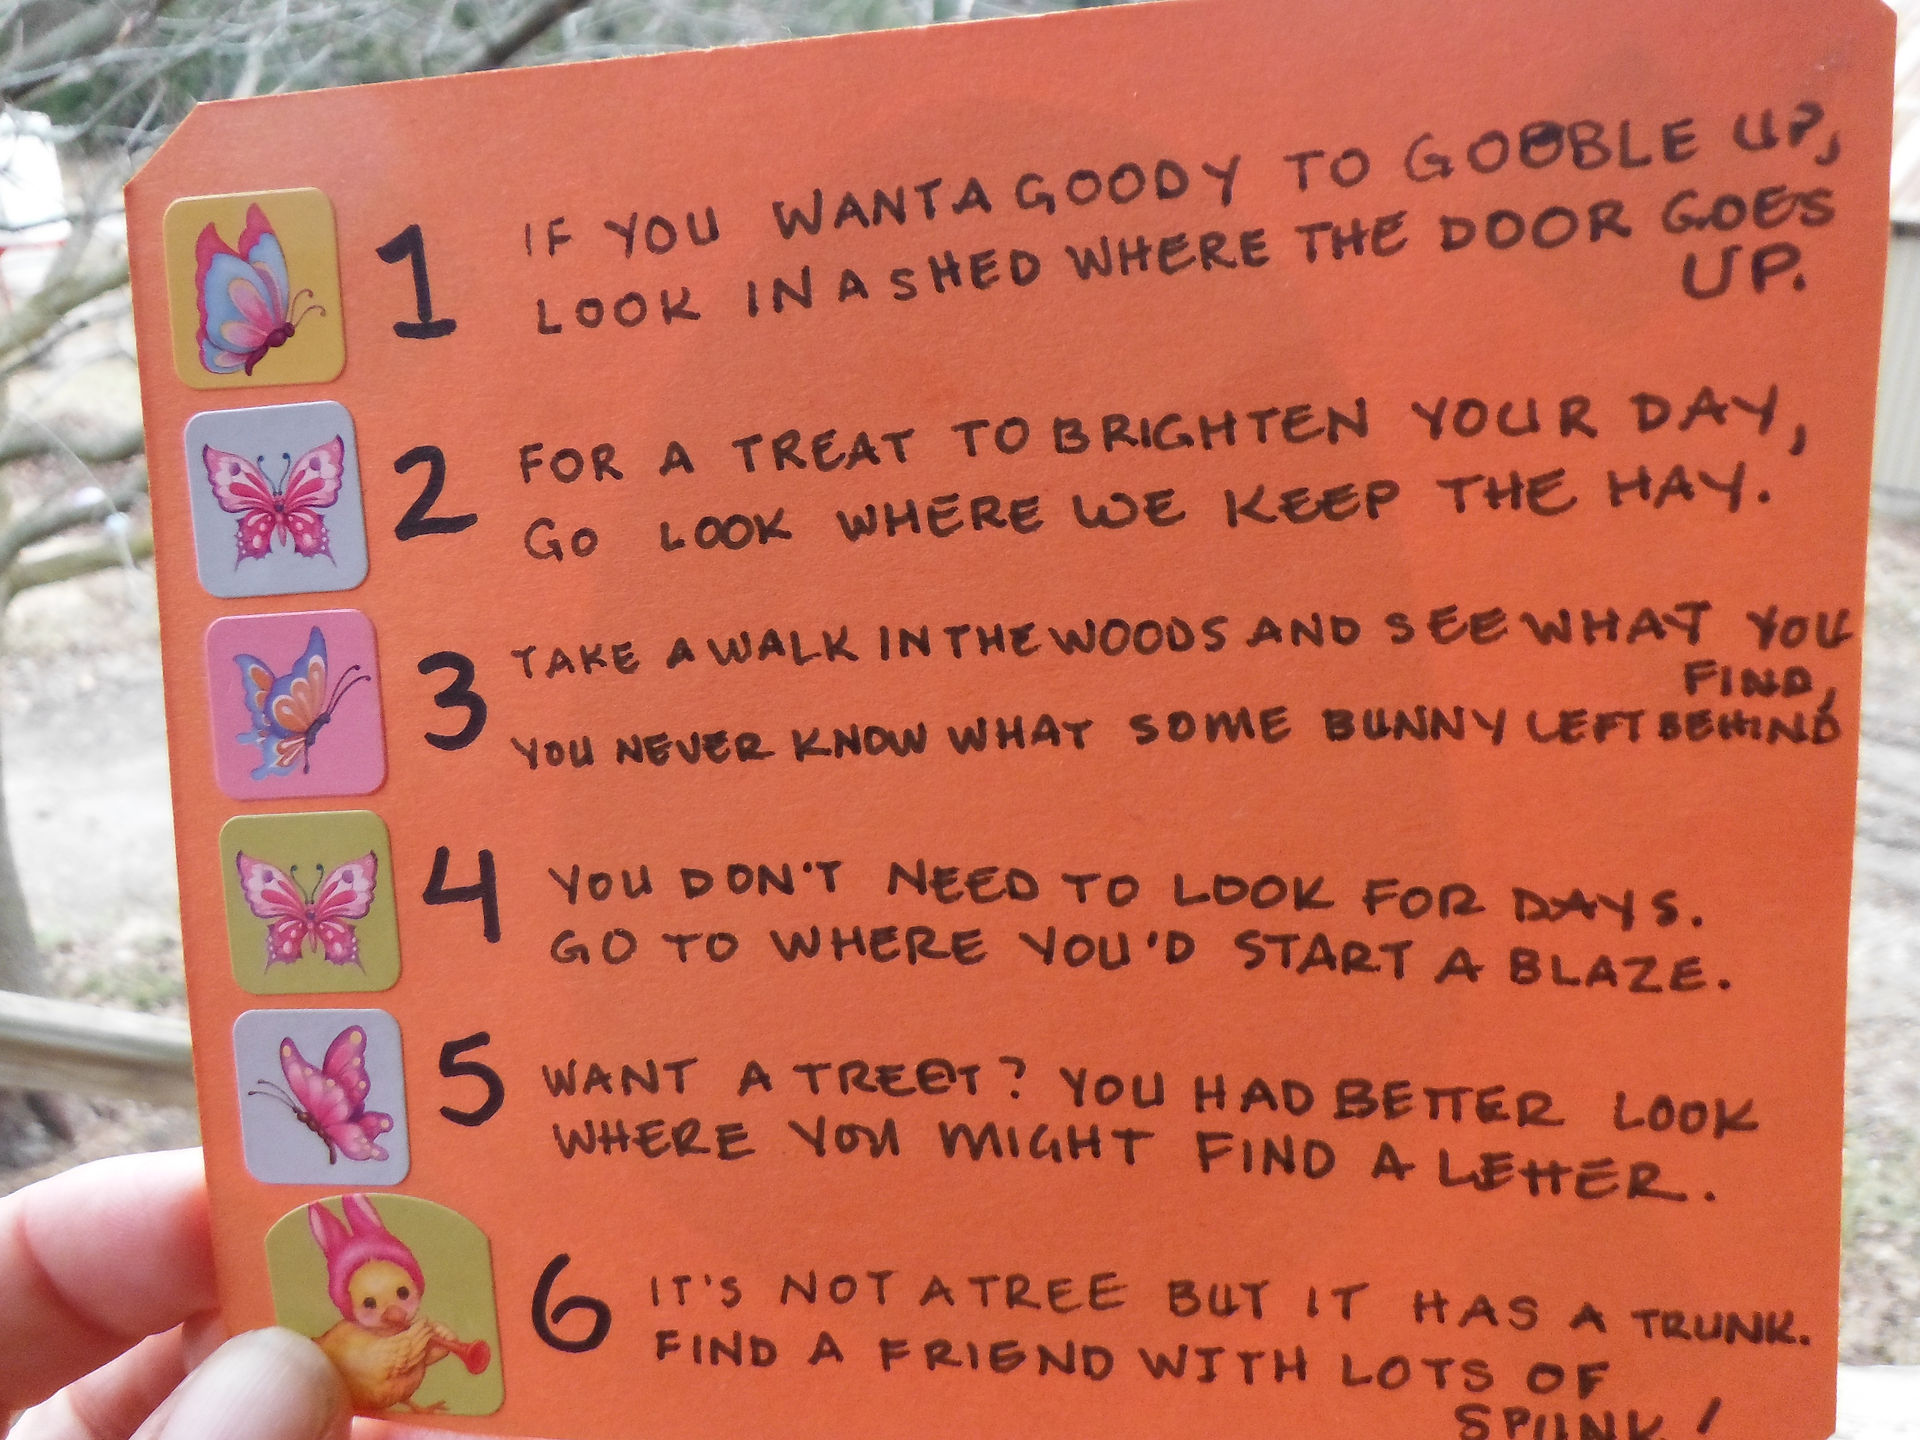 1 IF YOU WANT A GOODY TO GOBBLE UP,
LOOK IN A SHED WHERE THE DOOR GOES
UP.
2 FOR A TREAT TO BRIGHTEN YOUR DAY,
GO LOOK WHERE WE KEEP THE HAY.
3 TAKE A WALK IN THE WOODS AND SEE WHAT YOU
FIND,
YOU NEVER KNOW WHAT SOME BUNNY LEFT BEHIND
4 YOU DON'T NEED TO LOOK FOR DAYS.
GO TO WHERE YOU'D START A BLAZE.
5 WANT A TREET? YOU HAD BETTER LOOK
WHERE YOU MIGHT FIND A LETTER.
6 IT'S NOT A TREE BUT IT HAS A TRUNK.
FIND A FRIEND WITH LOTS OF
SPUNK!